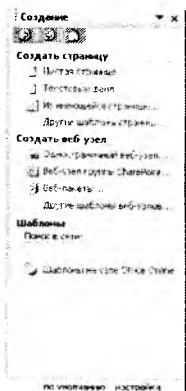 Создание
Создать страницу
Пустая страница
Текстовый файл
Из имеющейся страницы...
Другие шаблоны страниц...
Создать веб-узел
Одностраничный веб-узел...
Веб-узел группы SharePoint...
Веб-пакеты...
Другие шаблоны веб-узлов...
Шаблоны
Поиск в сети:
Шаблоны на узле Office Online
по умолчанию настройка